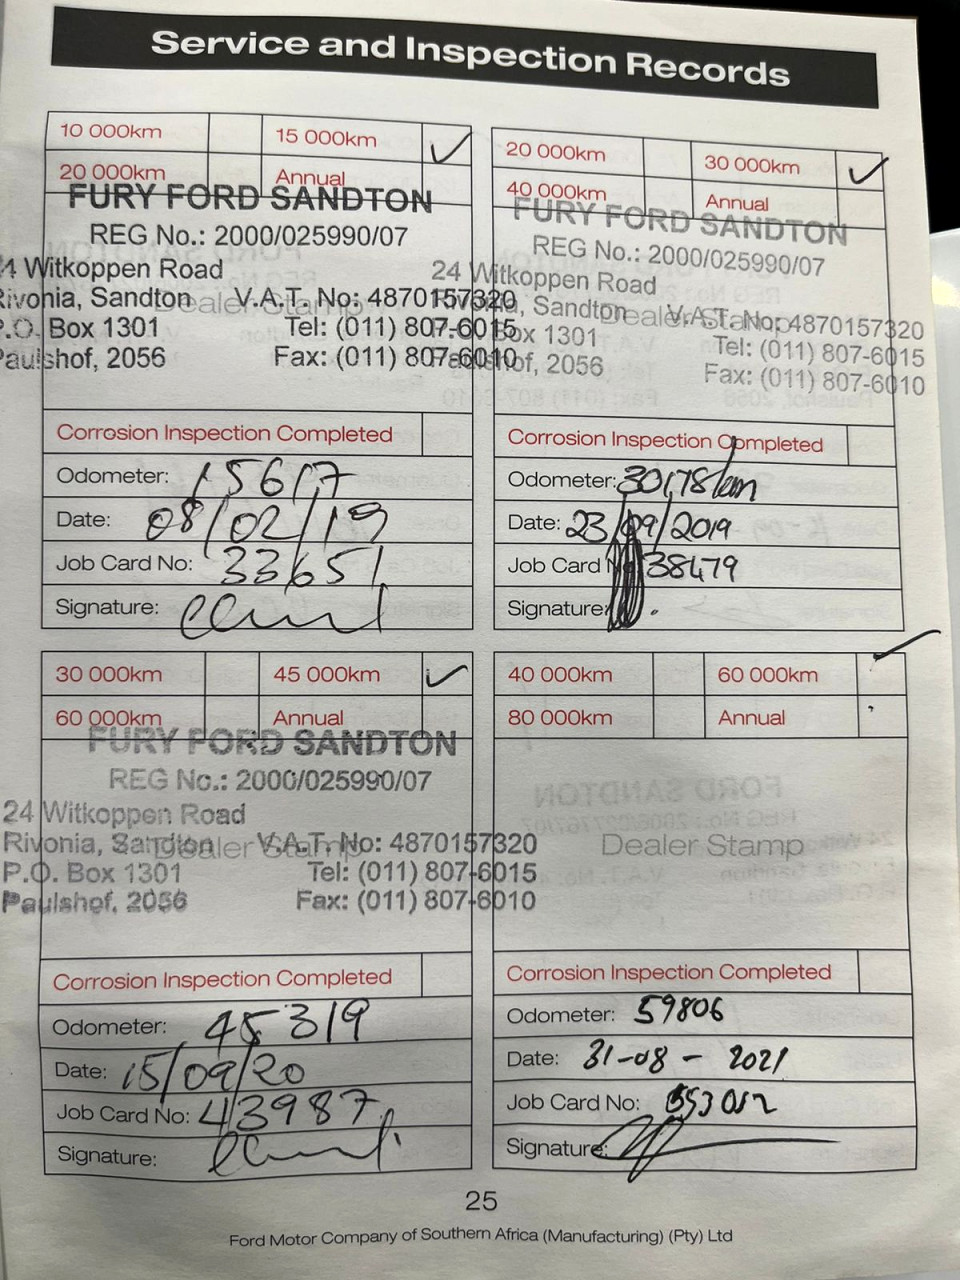 Service and Inspection Records
10 000km 15 000km ✓
20 000km Annual
FURY FORD SANDTON
REG No.: 2000/025990/07
24 Witkoppen Road
Rivonia, Sandton V.A.T. No: 4870157320
Dealer Stamp
P.O. Box 1301 Tel: (011) 807-6015
Paulshof, 2056 Fax: (011) 807-6010
Corrosion Inspection Completed
Odometer: 15617
Date: 08/02/19
Job Card No: 33651
Signature:
20 000km 30 000km ✓
40 000km Annual
FURY FORD SANDTON
REG No.: 2000/025990/07
24 Witkoppen Road
Rivonia, Sandton V.A.T. No: 4870157320
Dealer Stamp
P.O. Box 1301 Tel: (011) 807-6015
Paulshof, 2056 Fax: (011) 807-6010
Corrosion Inspection Completed
Odometer: 30178km
Date: 23/09/2019
Job Card No 38479
Signature:
30 000km 45 000km ✓
60 000km Annual
FURY FORD SANDTON
REG No.: 2000/025990/07
24 Witkoppen Road
Rivonia, Sandton V.A.T. No: 4870157320
Dealer Stamp
P.O. Box 1301 Tel: (011) 807-6015
Paulshof, 2056 Fax: (011) 807-6010
Corrosion Inspection Completed
Odometer: 45319
Date: 15/09/20
Job Card No: 43987
Signature:
40 000km 60 000km ✓
80 000km Annual
Dealer Stamp
Corrosion Inspection Completed
Odometer: 59806
Date: 31-08-2021
Job Card No:
Signature:
25
Ford Motor Company of Southern Africa (Manufacturing) (Pty) Ltd